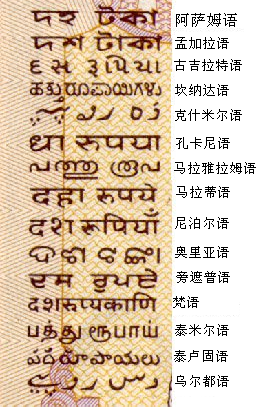 দহ টকা 阿萨姆语
দশ টাকা 孟加拉语
દસ રૂપિયા 古吉拉特语
ಹತ್ತು ರೂಪಾಯಿಗಳು 坎纳达语
克什米尔语
धा रुपया 孔卡尼语
马拉雅拉姆语
दहा रुपये 马拉蒂语
दश रुपियाँ 尼泊尔语
奥里亚语
ਦਸ ਰੁਪਏ 旁遮普语
दशरुप्यकाणि 梵语
பத்து ரூபாய் 泰米尔语
పది రూపాయలు 泰卢固语
乌尔都语